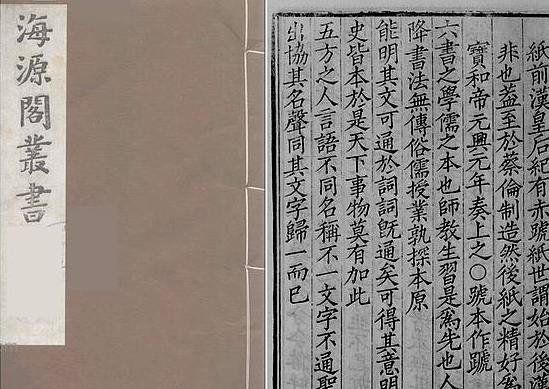 海源閣叢書
紙前漢皇后紀有赤號紙世謂始於後漢
非也葢至於蔡倫制造然後紙之精好爲
寶和帝元興元年奏上之〇號本作
六書之學儒之本也師教生習是爲先也人
降書法無傳俗儒授業孰探本原
能明其文可通於詞詞旣通矣可得其意明
史皆本於是天下事物莫有加此
五方之人言語不同名稱不一文字不通聖
出協其名聲同其文字歸一而已